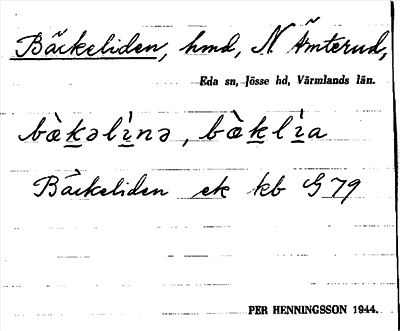 Bäckeliden, hmd, N. Ämterud,
Eda sn, Jösse hd, Värmlands län.
bæ̀kəlìnə, bæ̀klìa
Bäckeliden ek kb G 79
PER HENNINGSSON 1944.